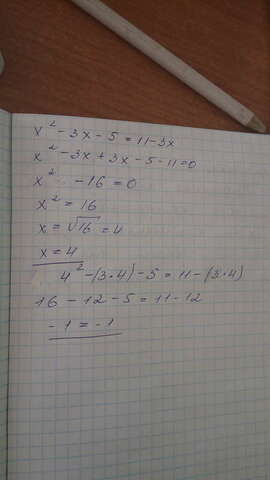 x² - 3x - 5 = 11 - 3x
x² - 3x + 3x - 5 - 11 = 0
x² - 16 = 0
x² = 16
x = √16 = 4
x = 4
4² - (3·4) - 5 = 11 - (3·4)
16 - 12 - 5 = 11 - 12
- 1 = - 1